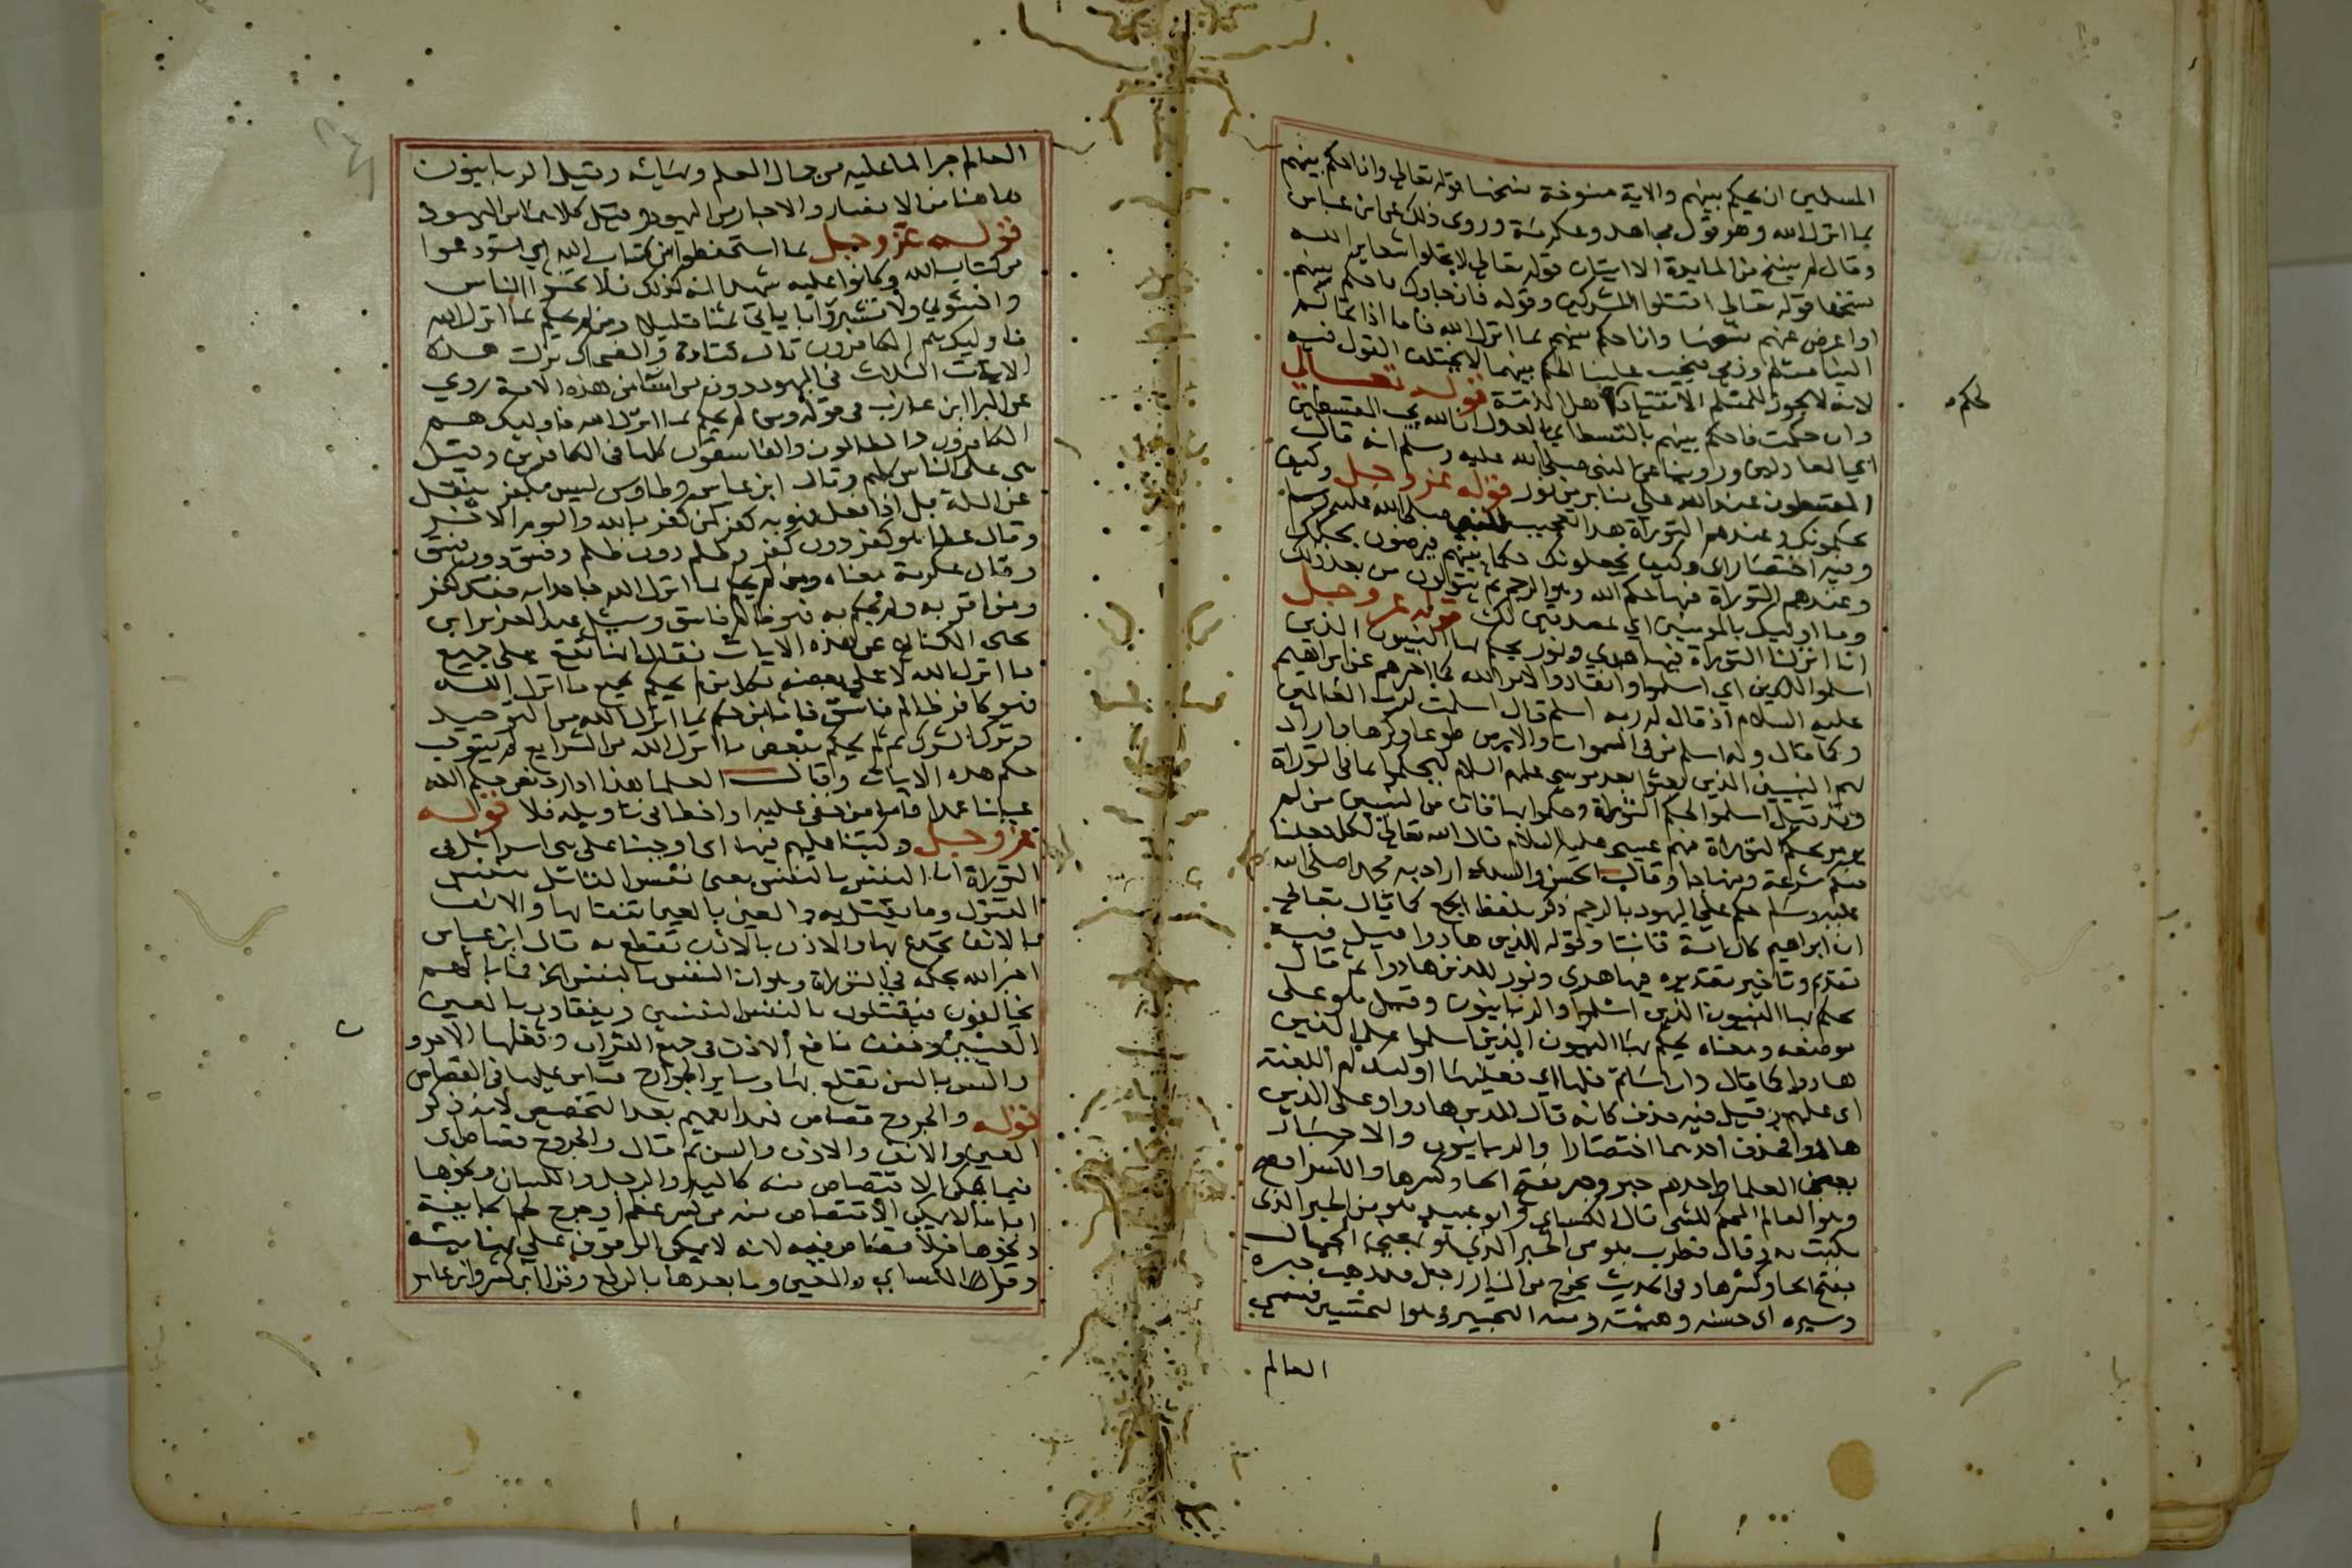 المسلمين ان يحكم بينهم والاية منسوخة نسخها قوله تعالى وان احكم بينهم
بما انزل الله وهو قول مجاهد وعكرمة وروى ذلك عن ابن عباس
وقال لم ينسخ من المايدة الا ايتان قوله تعالى لا تحلوا شعاير الله
نسخها قوله تعالى اقتلوا المشركين وقوله فان جاوك فاحكم بينهم
او اعرض عنهم نسخها وان احكم بينهم بما انزل الله فاما اذا تحاكم
الينا مسلم وذمي فيجب علينا الحكم بينهما لا يختلف القول فيه
لانه لا يجوز للمسلم الانقياد لحكم اهل الذمة قوله تعالى
وان حكمت فاحكم بينهم بالقسط اي بالعدل ان الله يحب المقسطين
اي العادلين وروينا عن النبي صلى الله عليه وسلم انه قال
المقسطون عند الله على منابر من نور قوله عز وجل وكيف
يحكمونك وعندهم التوراة هذا تعجيب للنبي صلى الله عليه وسلم
وفيه اختصار اي وكيف يجعلونك حكما بينهم فيرضون بحكمك
وعندهم التوراة فيها حكم الله وهو الرجم ثم يتولون من بعد ذلك
وما اوليك بالمومنين اي بمصدقين لك قوله عز وجل
انا انزلنا التوراة فيها هدي ونور يحكم بها النبيون الذين
اسلموا الذين اي اسلموا وانقادوا لامر الله كما اخبرهم عن ابراهيم
عليه السلام اذ قال له ربه اسلم قال اسلمت لرب العالمين
وكما قال وله اسلم من في السموات والارض طوعا وكرها واراد
بهم النبيين الذين بعثوا بعد موسى عليهم السلام ليحكموا بما في التوراة
وقد قيل اسلموا لحكم التوراة وحكموا بها فان من النبيين من لم
يومر بحكم التوراة منهم عيسى عليه السلام قال الله تعالى لكل جعلنا
منكم شرعة ومنهاجا وقال الحسن والسدي اراد به محمدا صلى الله
عليه وسلم حكم على اليهود بالرجم ذكر بلفظ الجمع كما قال تعالى
ان ابراهيم كان امة قانتا وقوله للذين هادوا قيل فيه
تقديم وتاخير تقديره فيها هدى ونور للذين هادوا ثم قال
يحكم بها النبيون الذين اسلموا والربانيون وقيل هو على
موضعه ومعناه يحكم بها النبيون الذين اسلموا على الذين
هادوا كما قال وان اساتم فلها اي فعليها اوليك لهم اللعنة
اي عليهم وقيل فيه حذف كانه قال للذين هادوا وعلى الذين
هادوا فحذف احدهما اختصارا والربانيون والاحبار
يعني العلما واحدهم حبر وحبر بفتح الحا وكسرها والكسر افصح
وهو العالم المحكم للشي قال الكسائي وابو عبيد هو من الحبر الذي
يكتب به وقال قطرب هو من الحبر الذي هو بمعنى الجمال
بفتح الحا وكسرها وفي الحديث يخرج من النار رجل قد ذهب حبره
وسبره اي حسنه وهيئته ومنه التحبير وهو التحسين فسمي
العالم
لحكم
العالم حبرا لما عليه من جمال العلم وبهائه وقيل الربانيون
هاهنا من الانصار والاحبار من اليهود وقيل كلاهما من اليهود
قوله عز وجل بما استحفظوا من كتاب الله اي استودعوا
من كتاب الله وكانوا عليه شهدا انه كذلك فلا تخشوا الناس
واخشوني ولا تشتروا باياتي ثمنا قليلا ومن لم يحكم بما انزل الله
فاوليك هم الكافرون قال قتادة والضحاك نزلت هذه
الايات الثلاث في اليهود دون من اسا من هذه الامة روي
عن البرا ابن عازب في قوله ومن لم يحكم بما انزل الله فاوليك هم
الكافرون والظالمون والفاسقون كلها في الكافرين وقيل
هي على الناس كلهم وقال ابن عباس وطاوس ليس بكفر ينقل
عن الملة بل اذا فعل فهو به كفر كمن كفر بالله واليوم الاخر
وقال عطا هو كفر دون كفر وظلم دون ظلم وفسق دون فسق
وقال عكرمة معناه ومن لم يحكم بما انزل الله جاحدا به فقد كفر
ومن اقر به ولم يحكم به فهو ظالم فاسق وسئل عبد العزيز ابن
يحيى الكناني عن هذه الايات فقال انها تقع على جميع
ما انزل الله لا على بعضه فكل من لم يحكم بجميع ما انزل الله
فهو كافر ظالم فاسق فاما من حكم بما انزل الله من التوحيد
وترك الشرك ثم لم يحكم ببعض ما انزل الله من الشرايع لم يستوجب
حكم هذه الايات وقال العلما هذا اذا رد نص حكم الله
عيانا عمدا فاما من خفي عليه او اخطا في تاويله فلا قوله
عز وجل وكتبنا عليهم فيها اي اوجبنا على بني اسرائيل في
التوراة ان النفس بالنفس يعني نفس القاتل بنفس
المقتول وما يقتل به والعين بالعين تفقا بها والانف
بالانف تجدع بها والاذن بالاذن تقطع به قال ابن عباس
اخبر الله بحكمه في التوراة وهو ان النفس بالنفس الخ فما بالهم
يخالفون فيقتلون بالنفس النفسين ويفقاون بالعين
العينين وخفف نافع الاذن في جميع القران وثقلها الاخرون
والسن بالسن تقلع بها وساير الجوارح قياس عليها في القصاص
قوله والجروح قصاص فهذا تعميم بعد التخصيص لانه ذكر
العين والانف والاذن والسن ثم قال والجروح قصاص اي
فيما يمكن الاقتصاص منه كاليد والرجل واللسان ونحوها
اما ما لا يمكن الاقتصاص منه من كسر عظم او جرح لحم كالجايفة
ونحوها فلا قصاص فيه لانه لا يمكن الوقوف على نهايته
وقرا الكسائي والعين وما بعدها بالرفع وقرا ابن كثير وابن عامر